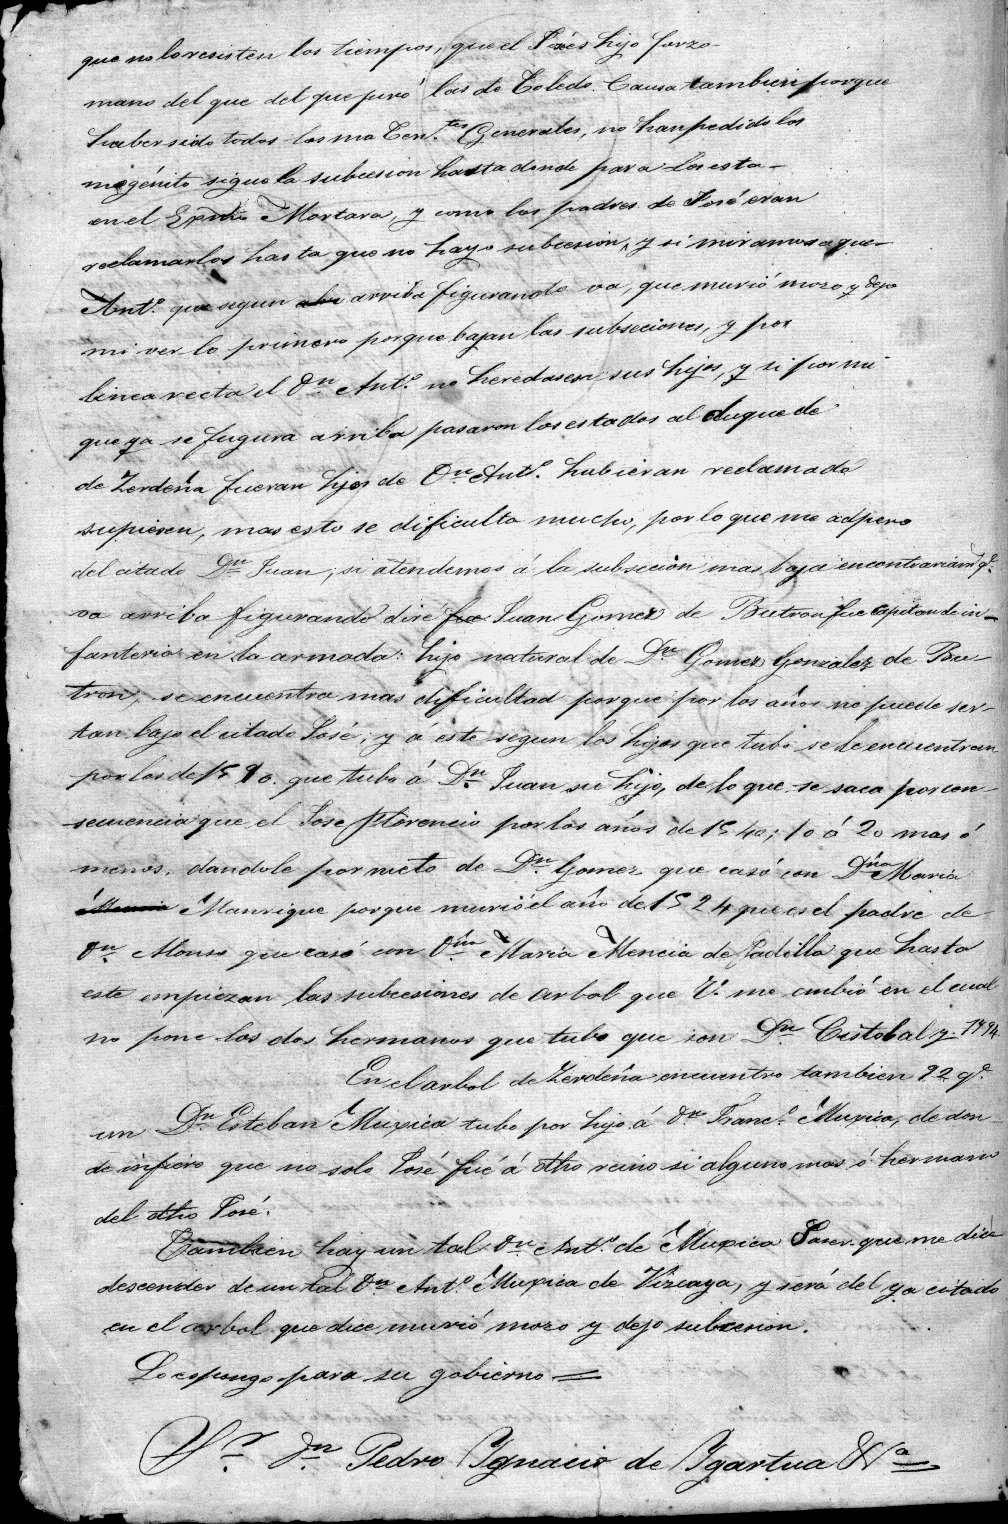 que no lo resisten los tiempos, que el Jzés hijo forzo-
mano del que del que juró las de Toledo. Causa tambien porque
haber sido todos los mo Ten.tes Generales, no han pedido los
mogénito sigue la subcesion hasta donde para Los esta-
en el Mortara, y como los padres de José eran
reclamarlos hasta que no haya subcesion, y si miramos a que-
Ant.º que segun arriba figurando va, que murió mozo y dejo
mi ver lo primero porque bajan las subseciones, y por
linea recta el Dn. Ant.º no heredasen sus hijos, y si por mi
que ya se fugura arriba pasaron los estados al duque de
de Zerdeña fueran hijos de Dn. Ant.º hubieran reclamado
supiesen, mas esto se dificulta mucho, por lo que me
del citado Dn. Juan; si atendemos á la subsecion mas baja encontrariam q.e
va arriba figurando dire Juan Gomez de Butron fue capitan de in-
fanteria en la armada: hijo natural de Dn. Gomez Gonzalez de Bu-
tron, se encuentra mas dificultad porque por los años no puede ser
tan bajo el citado José, y á éste segun los hijos que tubo se le encuentran
por los de 1590. que tubo á Dn. Juan su hijo, de lo que se saca por con-
secuencia que el Jose Florencio por los años de 1540; 10 ó 20 mas ó
menos, dandole por nieto de Dn. Gomez que casó con Dña Maria
Manrique porque murió el año de 1524 que es el padre de
Dn. Alonso que casó con Dña. Maria Mencia de Padilla que hasta
este empiezan las subcesiones de arbol que V. me embió en el cual
no pone los dos hermanos que tubo que son Dn. Cistobal y
En el arbol de Zerdeña encuentro tambien q.e
un Dn. Esteban Muxica tubo por hijo á Dn. Franc.º Muxica, de don-
de infiero que no solo José fué á otro reino si alguno mas ó hermano
del otro José.
Tambien hay un tal Dn. Ant.º de Muxica que me dice
descender de un tal Dn. Ant.º Muxica de Vizcaya, y será del ya citado
en el arbol que dice murió mozo y dejo subcesion.
Lo espongo para su gobierno =
Sr. Dn. Pedro Ygnacio de Ygartua &a